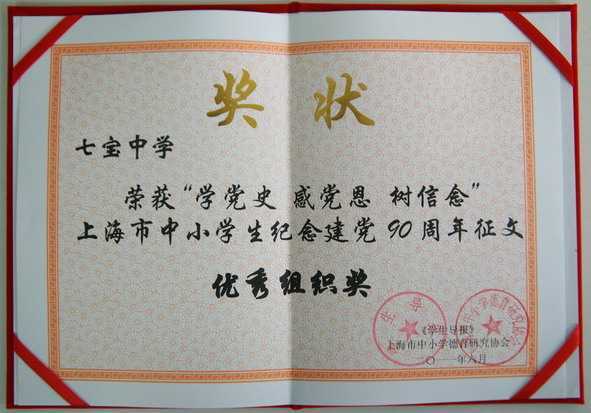 奖 状
七宝中学
荣获“学党史 感党恩 树信念”
上海市中小学生纪念建党90周年征文
优秀组织奖
《学生导报》
上海市中小学德育研究协会
二〇一一年六月